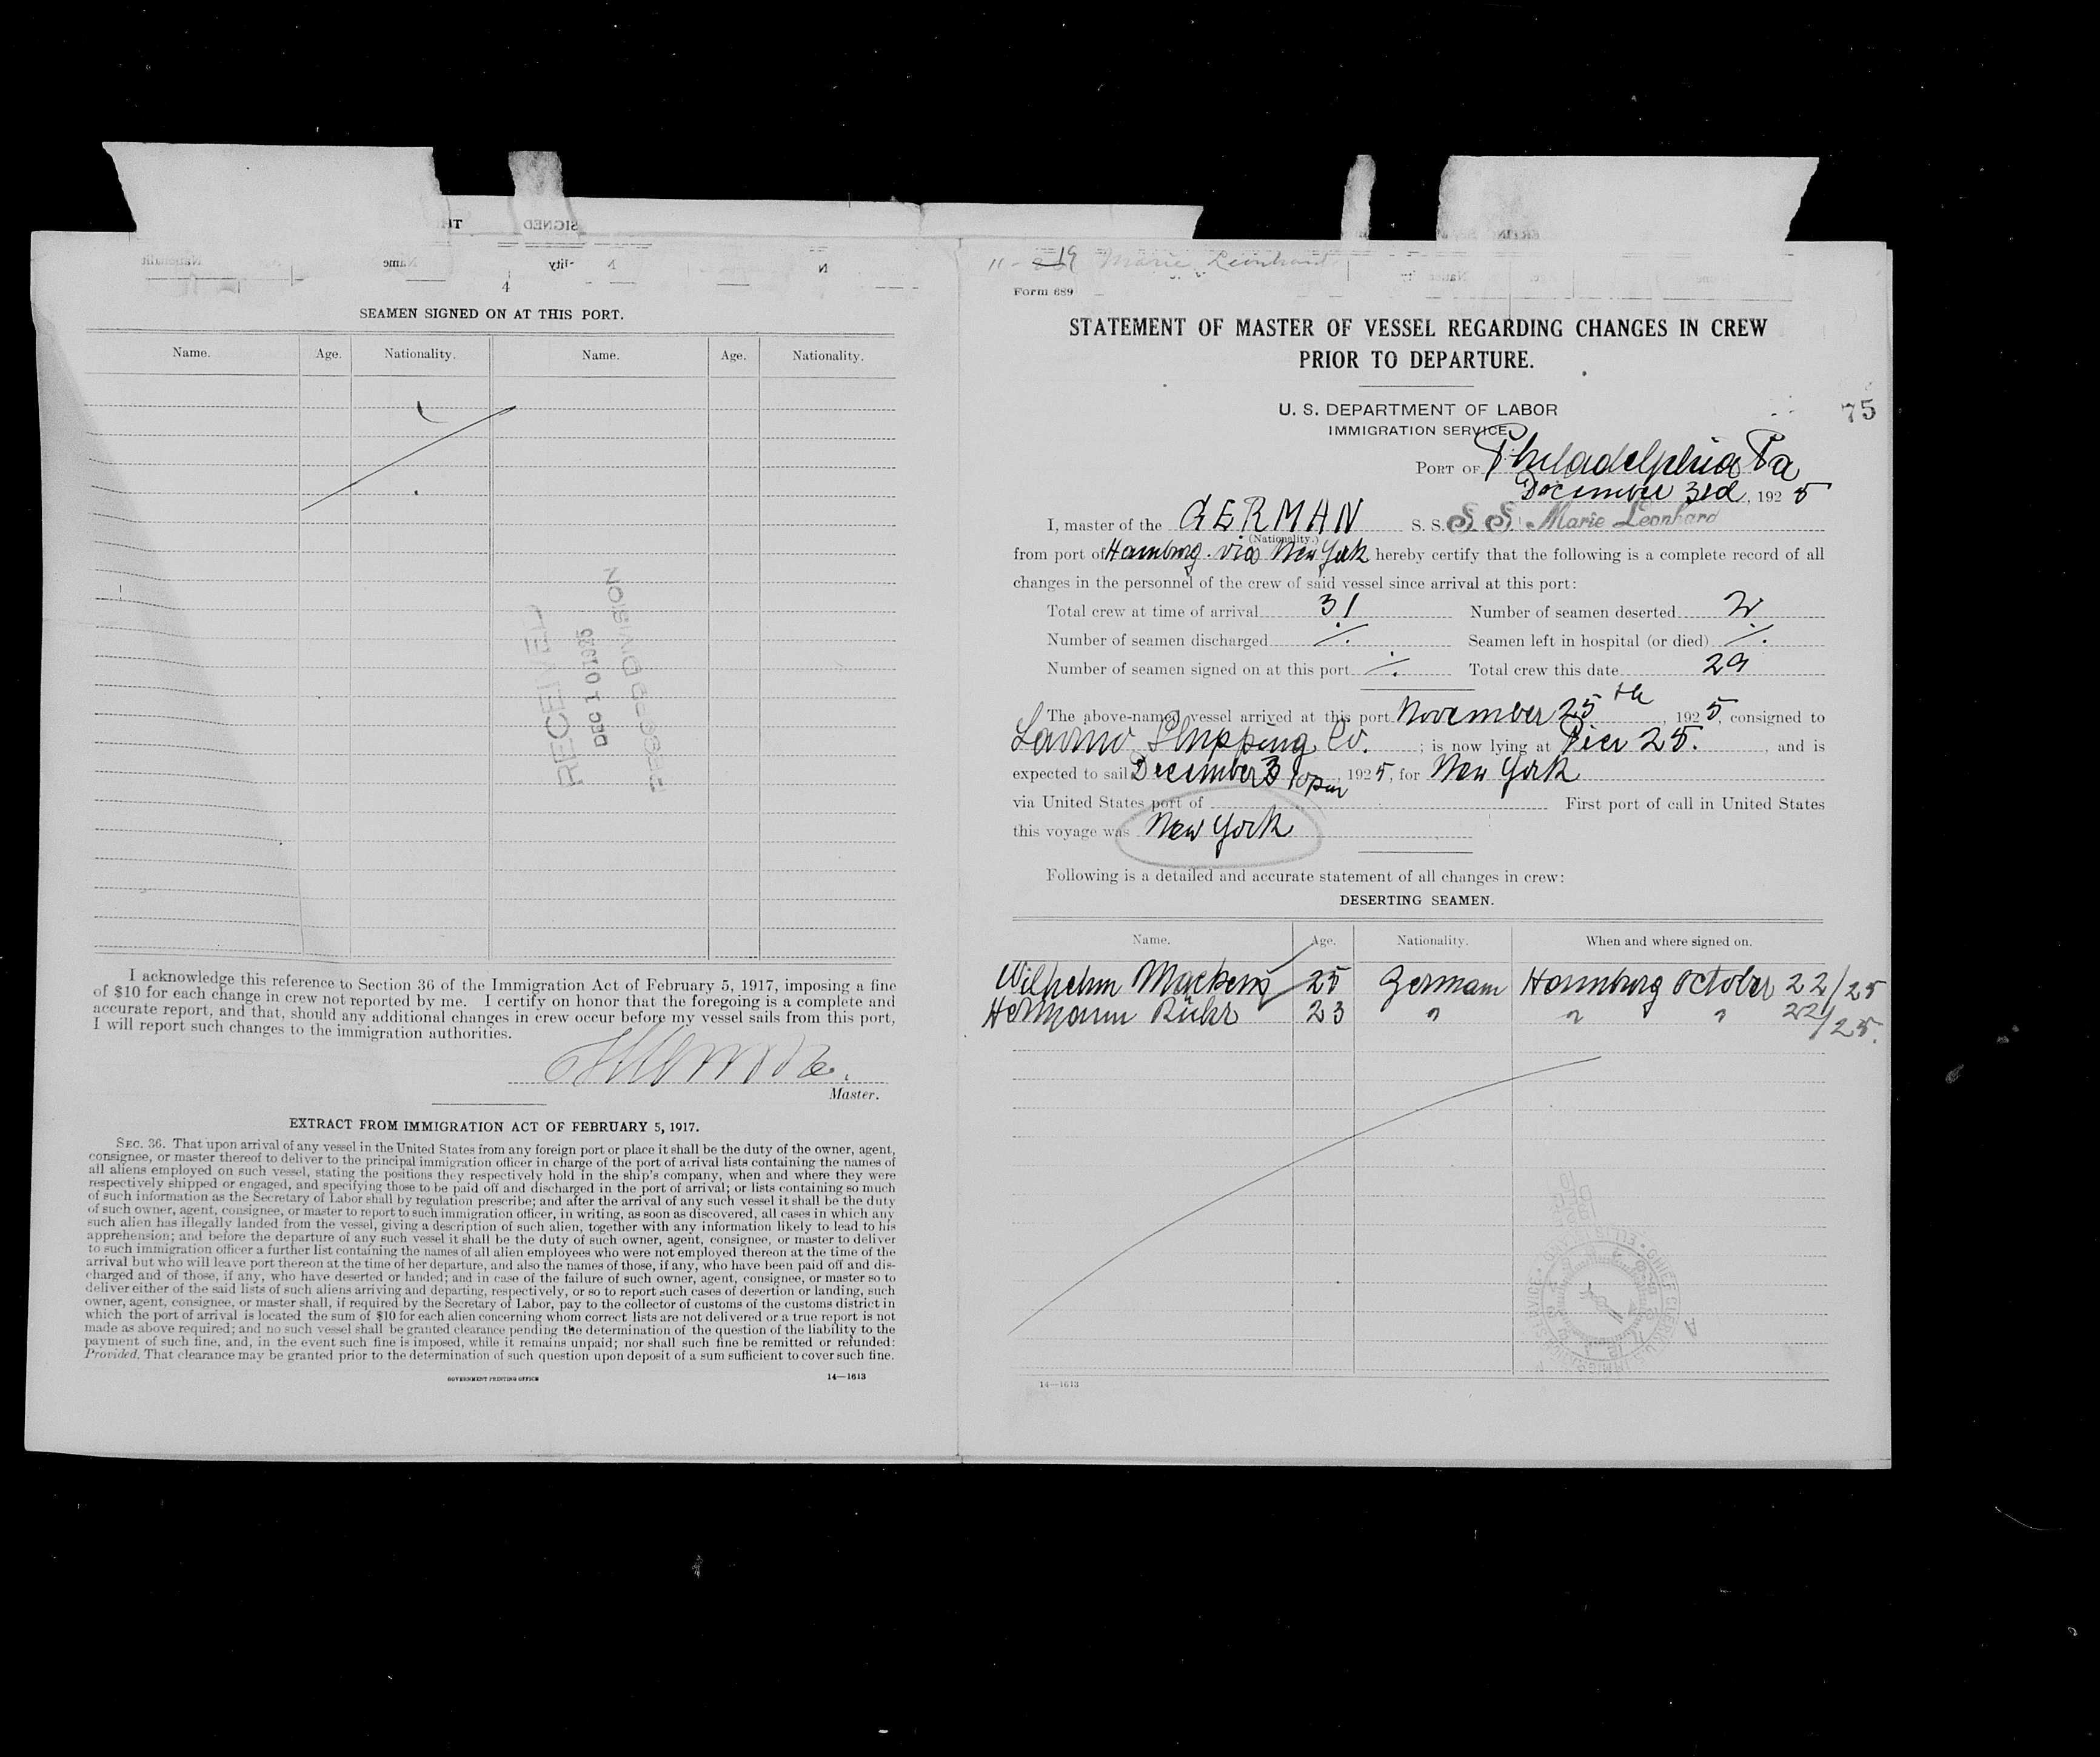 4
SEAMEN SIGNED ON AT THIS PORT.
Name. Age. Nationality. Name. Age. Nationality.
RECEIVED
DEC 10 1925
RECORD DIVISION
I acknowledge this reference to Section 36 of the Immigration Act of February 5, 1917, imposing a fine
of $10 for each change in crew not reported by me. I certify on honor that the foregoing is a complete and
accurate report, and that, should any additional changes in crew occur before my vessel sails from this port,
I will report such changes to the immigration authorities.
Master.
EXTRACT FROM IMMIGRATION ACT OF FEBRUARY 5, 1917.
SEC. 36. That upon arrival of any vessel in the United States from any foreign port or place it shall be the duty of the owner, agent,
consignee, or master thereof to deliver to the principal immigration officer in charge of the port of arrival lists containing the names of
all aliens employed on such vessel, stating the positions they respectively hold in the ship's company, when and where they were
respectively shipped or engaged, and specifying those to be paid off and discharged in the port of arrival; or lists containing so much
of such information as the Secretary of Labor shall by regulation prescribe; and after the arrival of any such vessel it shall be the duty
of such owner, agent, consignee, or master to report to such immigration officer, in writing, as soon as discovered, all cases in which any
such alien has illegally landed from the vessel, giving a description of such alien, together with any information likely to lead to his
apprehension; and before the departure of any such vessel it shall be the duty of such owner, agent, consignee, or master to deliver
to such immigration officer a further list containing the names of all alien employees who were not employed thereon at the time of the
arrival but who will leave port thereon at the time of her departure, and also the names of those, if any, who have been paid off and dis-
charged and of those, if any, who have deserted or landed; and in case of the failure of such owner, agent, consignee, or master so to
deliver either of the said lists of such aliens arriving and departing, respectively, or so to report such cases of desertion or landing, such
owner, agent, consignee, or master shall, if required by the Secretary of Labor, pay to the collector of customs of the customs district in
which the port of arrival is located the sum of $10 for each alien concerning whom correct lists are not delivered or a true report is not
made as above required; and no such vessel shall be granted clearance pending the determination of the question of the liability to the
payment of such fine, and, in the event such fine is imposed, while it remains unpaid; nor shall such fine be remitted or refunded:
Provided, That clearance may be granted prior to the determination of such question upon deposit of a sum sufficient to cover such fine.
GOVERNMENT PRINTING OFFICE 14—1613
Marie Leonhard
Form 689
STATEMENT OF MASTER OF VESSEL REGARDING CHANGES IN CREW
PRIOR TO DEPARTURE.
U. S. DEPARTMENT OF LABOR
IMMIGRATION SERVICE
75
PORT OF Philadelphia Pa
December 3rd, 1925
I, master of the GERMAN S. S. S S Marie Leonhard
(Nationality.)
from port of Hamburg via New York hereby certify that the following is a complete record of all
changes in the personnel of the crew of said vessel since arrival at this port:
Total crew at time of arrival 31 Number of seamen deserted 2
Number of seamen discharged ./. Seamen left in hospital (or died) ./.
Number of seamen signed on at this port ./. Total crew this date 29
The above-named vessel arrived at this port November 25th, 1925, consigned to
Lavino Shipping Co.; is now lying at Pier 25., and is
expected to sail December 3 10 pm, 1925, for New York
via United States port of First port of call in United States
this voyage was New York
Following is a detailed and accurate statement of all changes in crew:
DESERTING SEAMEN.
Name. Age. Nationality. When and where signed on.
Wilhelm Mackens 25 German Hamburg October 22/25
Hermann Rühr 23 " " " 22/25.
14—1613